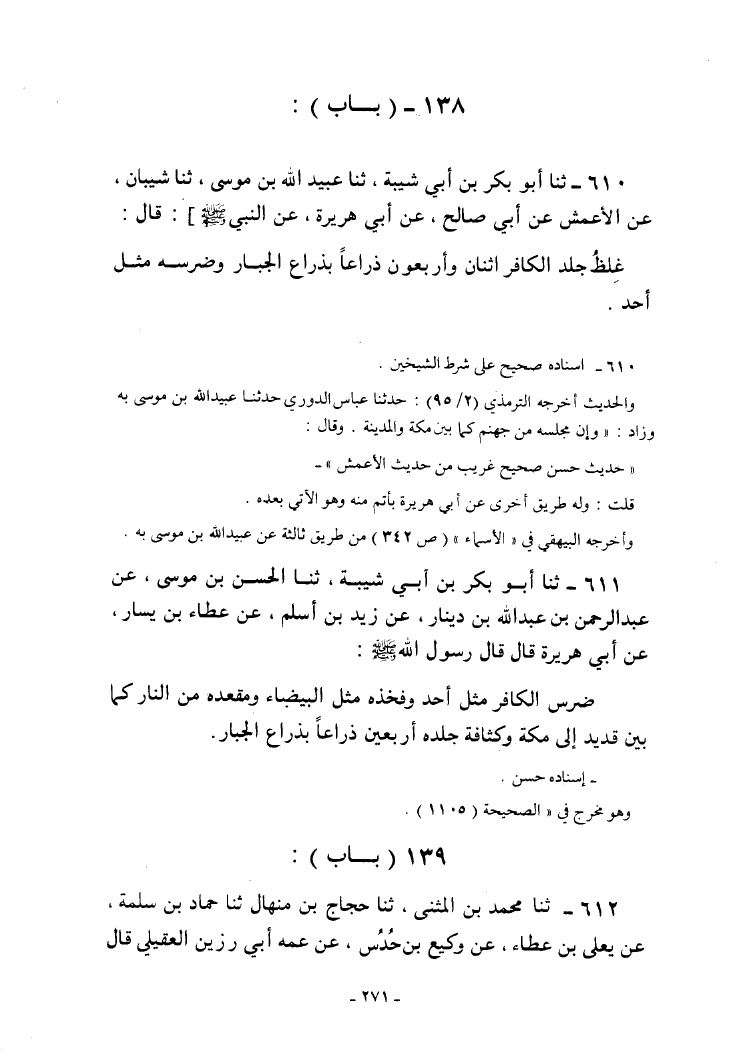 ١٣٨ - ( بـــاب ) :
٦١٠ - ثنا أبو بكر بن أبي شيبة ، ثنا عبيد الله بن موسى ، ثنا شيبان ،
عن الأعمش عن أبي صالح ، عن أبي هريرة ، عن النبي ﷺ ] : قال :
غِلظُ جلد الكافر اثنان وأربعون ذراعاً بذراع الجبـار وضرسـه مثـل
أحد .
٦١٠ - اسناده صحيح على شرط الشيخين .
والحديث أخرجه الترمذي (٢/ ٩٥) : حدثنا عباس الدوري حدثنـا عبيدالله بن موسى به
وزاد : « وإن مجلسه من جهنم كما بين مكة والمدينة . وقال :
« حديث حسن صحيح غريب من حديث الأعمش » -
قلت : وله طريق أخرى عن أبي هريرة بأتم منه وهو الآتي بعده .
وأخرجه البيهقي في « الأسماء » ( ص ٣٤٢ ) من طريق ثالثة عن عبيدالله بن موسى به .
٦١١ - ثنا أبـو بكر بن أبـي شيبـة ، ثنـا الحسـن بن موسى ، عن
عبدالرحمن بن عبدالله بن دينار ، عن زيد بن أسلم ، عن عطاء بن يسار ،
عن أبي هريرة قال قال رسول الله ﷺ :
ضرس الكافر مثل أحد وفخذه مثل البيضاء ومقعده من النار كما
بين قديد إلى مكة وكثافة جلده أربعين ذراعاً بذراع الجبار.
- إسناده حسن .
وهو مخرج في « الصحيحة ( ١١٠٥ ) .
١٣٩ ( بـــاب ) :
٦١٢ - ثنا محمد بن المثنى ، ثنا حجاج بن منهال ثنا حماد بن سلمة ،
عن يعلى بن عطاء ، عن وكيع بن حُدُس ، عن عمه أبي رزين العقيلي قال
- ٢٧١ -